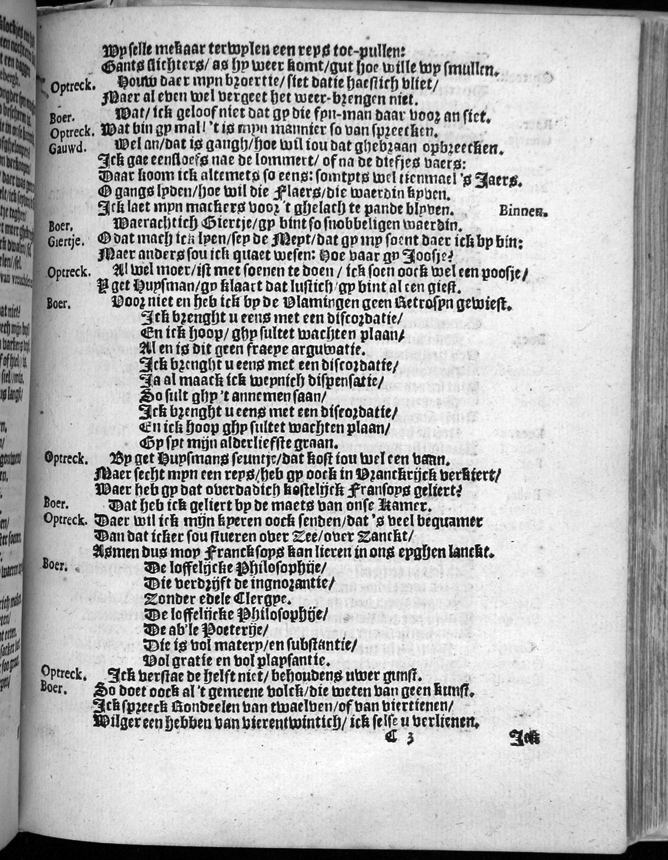 Wy selle mekaar terwylen een reys toe-pullen:
Gants slichters/ as hy weer komt/ gut hoe wille wy smullen.
Optreck. Houw daer myn broertie/ siet datie haestich vliet/
Maer al even wel vergeet het weer-brengen niet.
Boer. Wat/ ick geloof niet dat gy die fyn-man daar voor an siet.
Optreck. Wat bin gy mal! 't is myn mannier so van spreecken.
Gauwd. Wel an/ dat is gangh/ hoe wil iou dat ghebraan opbreecken.
Ick gae eensloefs nae de lommert/ of na de diefjes vaers:
Daar koom ick altemets so eens: somtyts wel tienmael 's Jaers.
O gangs lyden/ hoe wil die Flaers/ die waerdin kyven.
Ick laet myn mackers voor 't ghelach te pande blyven. Binnen.
Boer. Waerachtich Giertje/ gy bint so snobbeligen waerdin.
Giertje. O dat mach ick lyen/ sey de Meyt/ dat gy my soent daer ick by bin:
Maer anders sou ick quaet wesen: Hoe vaar gy Joosje?
Optreck. Al wel moer/ ist met soenen te doen/ ick soen oock wel een poosje/
Y get Huysman/ gy klaart dat lustich/ gy bint al een giest.
Boer. Voor niet en heb ick by de Vlamingen geen Retrosyn gewiest.
Ick brenght u eens met een discordatie/
En ick hoop/ ghy sultet wachten plaan/
Al en is dit geen fraeye arguwatie.
Ick brenght u eens met een discordatie/
Ja al maack ick weynich dispensatie/
So sult ghy 't annemen saan/
Ick brenght u eens met een discordatie/
En ick hoop ghy sultet wachten plaan/
Gy syt mijn alderliefste graan.
Optreck. By get Huysmans seuntje/ dat kost iou wel een vaan.
Maer secht myn een reys/ heb gy oock in Vranckrijck verkiert/
Waer heb gy dat overdadich kostelijck Fransoys geliert?
Boer. Dat heb ick geliert by de maets van onse Kamer.
Optreck. Daer wil ick mijn kyeren oock senden/ dat 's veel bequamer
Dan dat icker sou stueren over Zee/ over Zanckt/
Asmen dus moy Francksoys kan lieren in ons eyghen lanckt.
Boer. De loffelijcke Philosophije/
Die verdrijft de ingnorantie/
Zonder edele Clergye.
De loffelijcke Philosophije/
De ab'le Poeterije/
Die is vol matery/ en substantie/
Vol gratie en vol playsantie.
Optreck. Ick verstae de helft niet/ behoudens uwer gunst.
Boer. So doet oock al 't gemeene volck/ die weten van geen kunst.
Ick spreeck Rondeelen van twaelven/ of van viertienen/
Wilger een hebben van vierentwintich/ ick selse u verlienen.
C 3 Ick